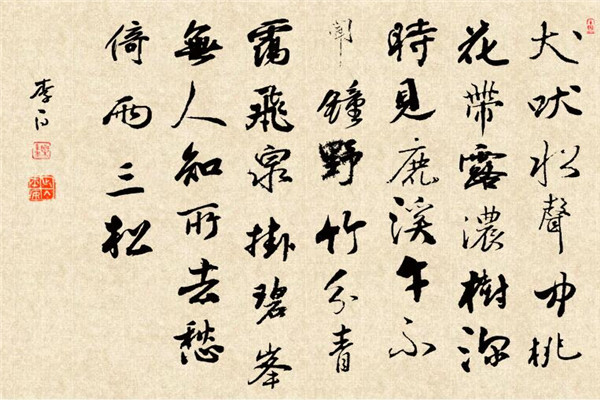 犬吠水聲中桃
花帶露濃樹深
時見鹿溪午不
聞鐘野竹分青
靄飛泉掛碧峯
無人知所去愁
倚兩三松
李白